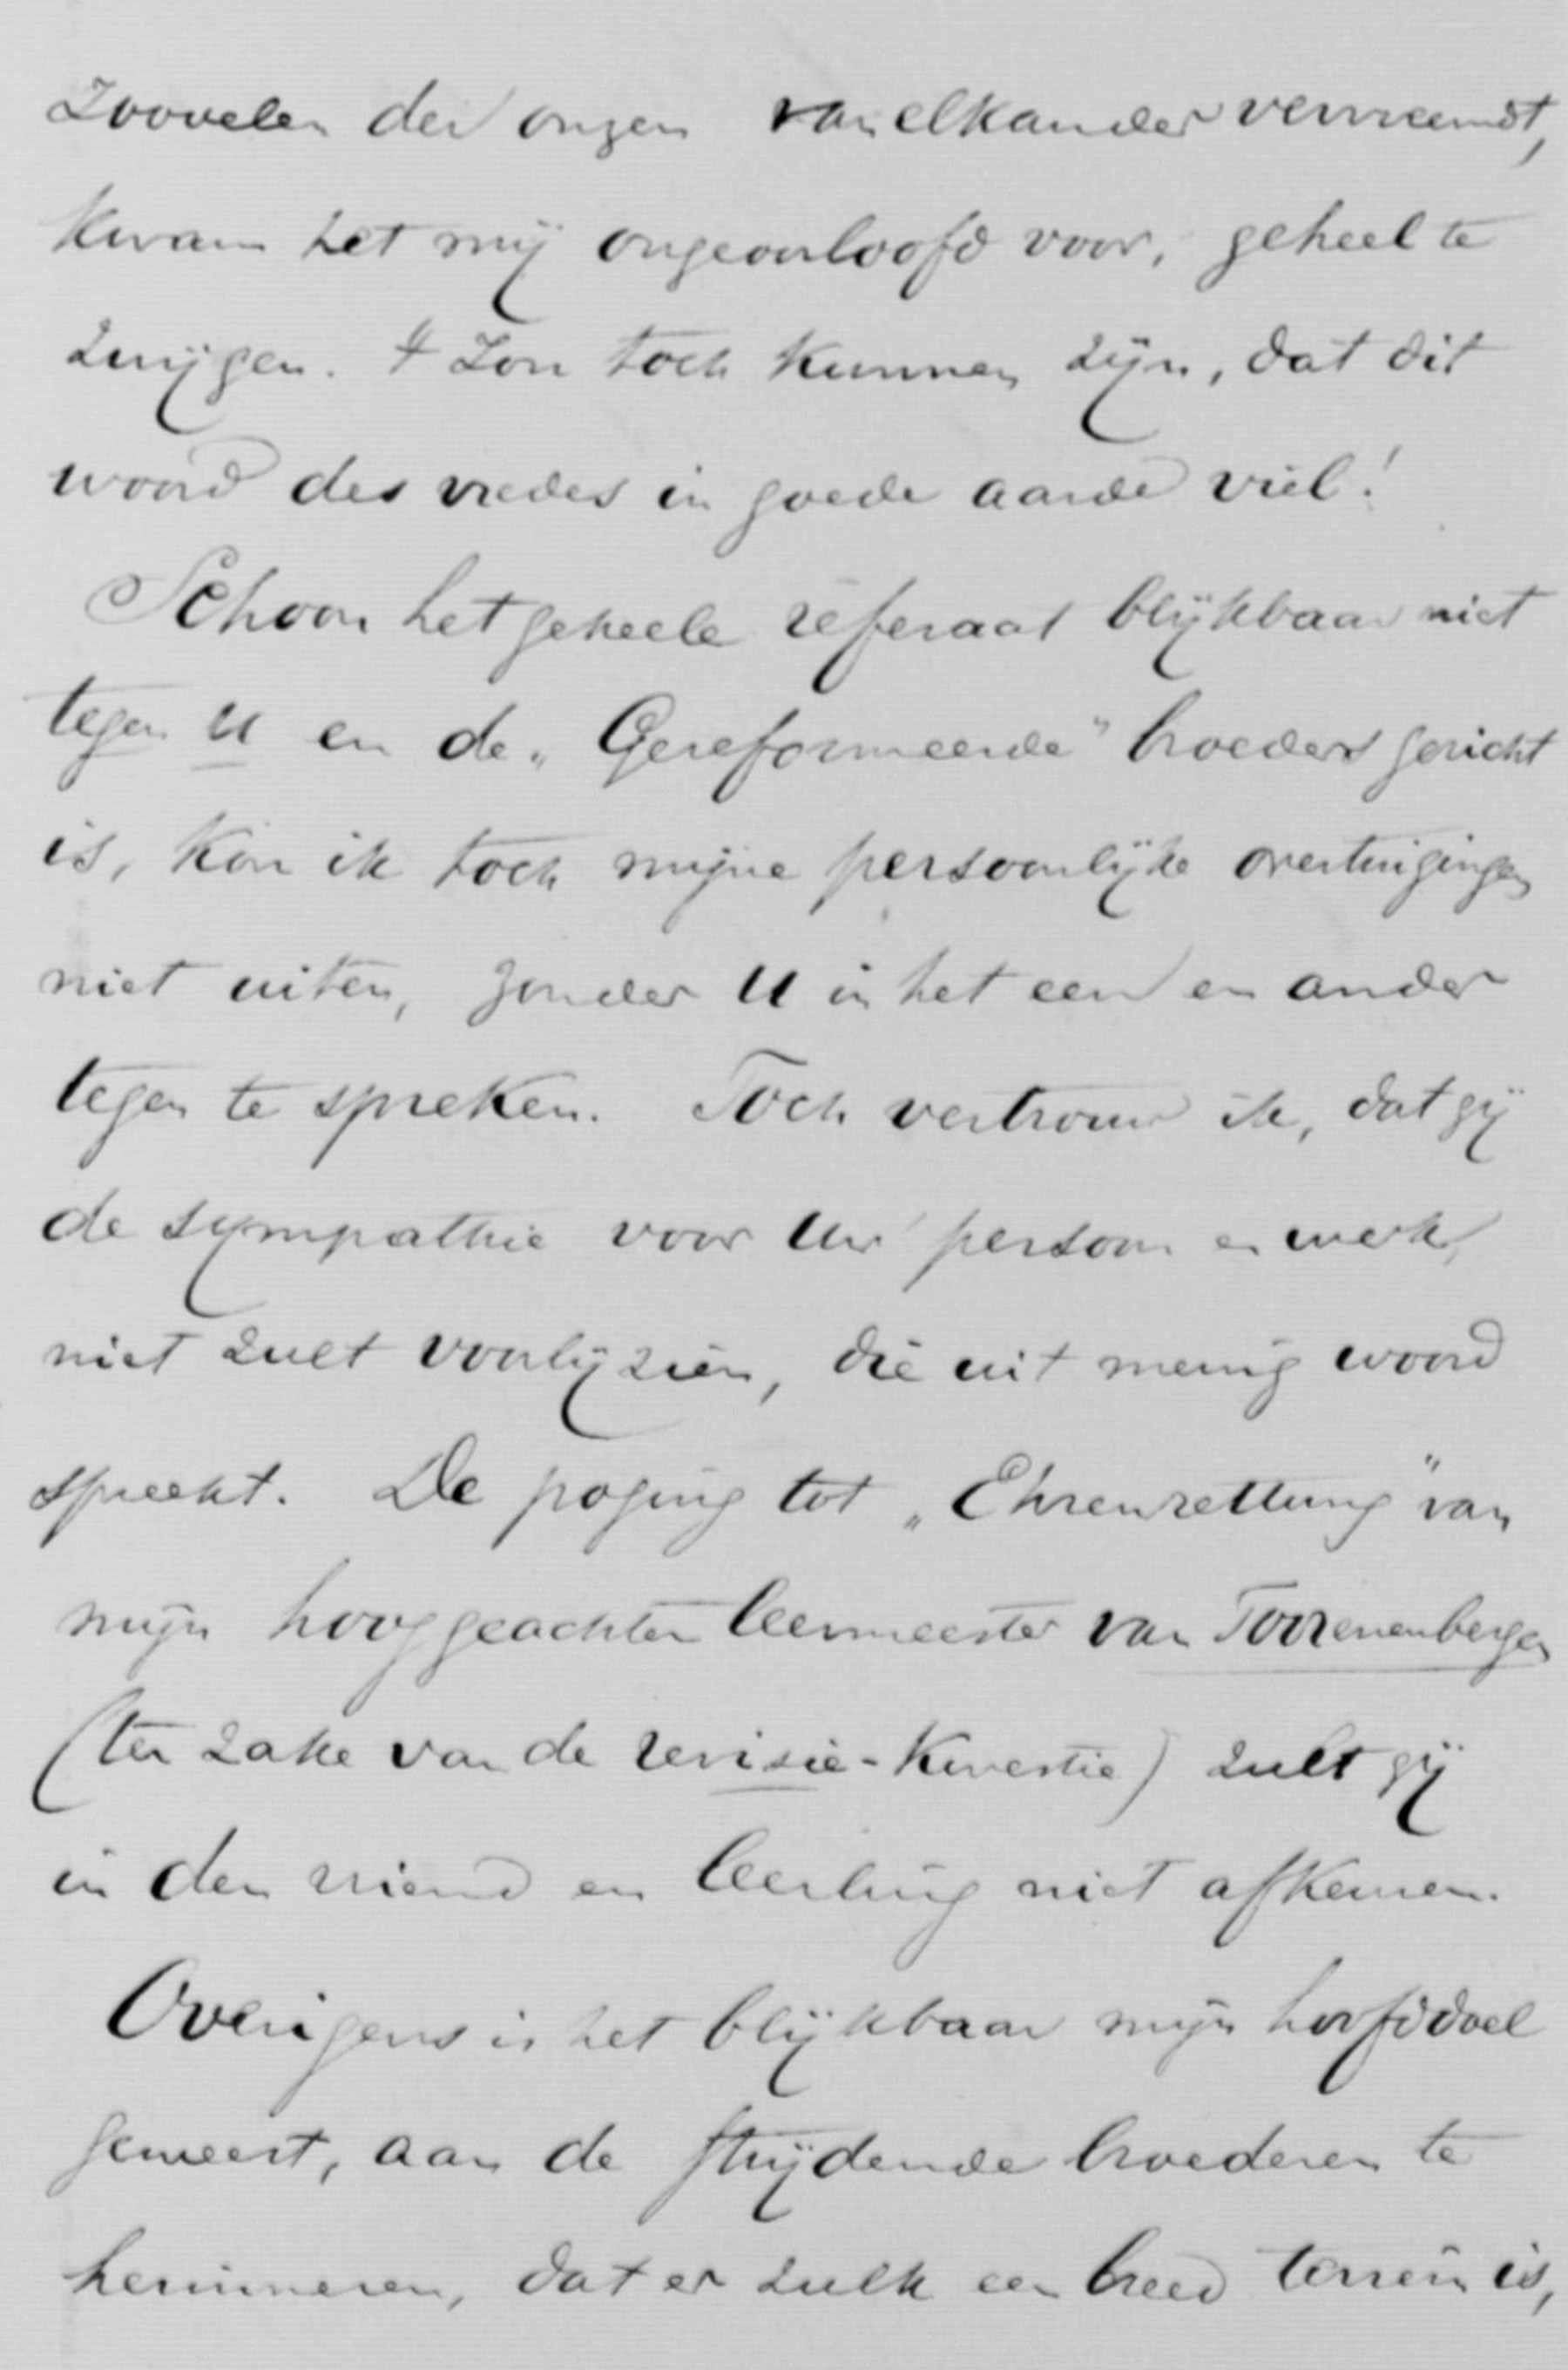 zoovelen der onzen van elkander vervreemdt,
kwam het mij ongeoorloofd voor, geheel te
zwijgen. 't Zou toch kunnen zijn, dat dit
woord des vredes in goede aarde viel!
Schoon het geheele referaat blijkbaar niet
tegen U en de „Gereformeerde" broeders gericht
is, kon ik toch mijne persoonlijke overtuigingen
niet uiten, zonder U in het een en ander
tegen te spreken. Toch vertrouw ik, dat gij
de sympathie voor Uw persoon en werk,
niet zult voorbijzien, die uit menig woord
spreekt. De poging tot „Ehrenrettung" van
mijn hooggeachten leermeester van Toorenenbergen
(ter zake van de revisie-kwestie) zult gij
in den vriend en leerling niet afkeuren.
Overigens is het blijkbaar mijn hoofddoel
geweest, aan de strijdende broederen te
herinneren, dat er zulk een breed terrein is,